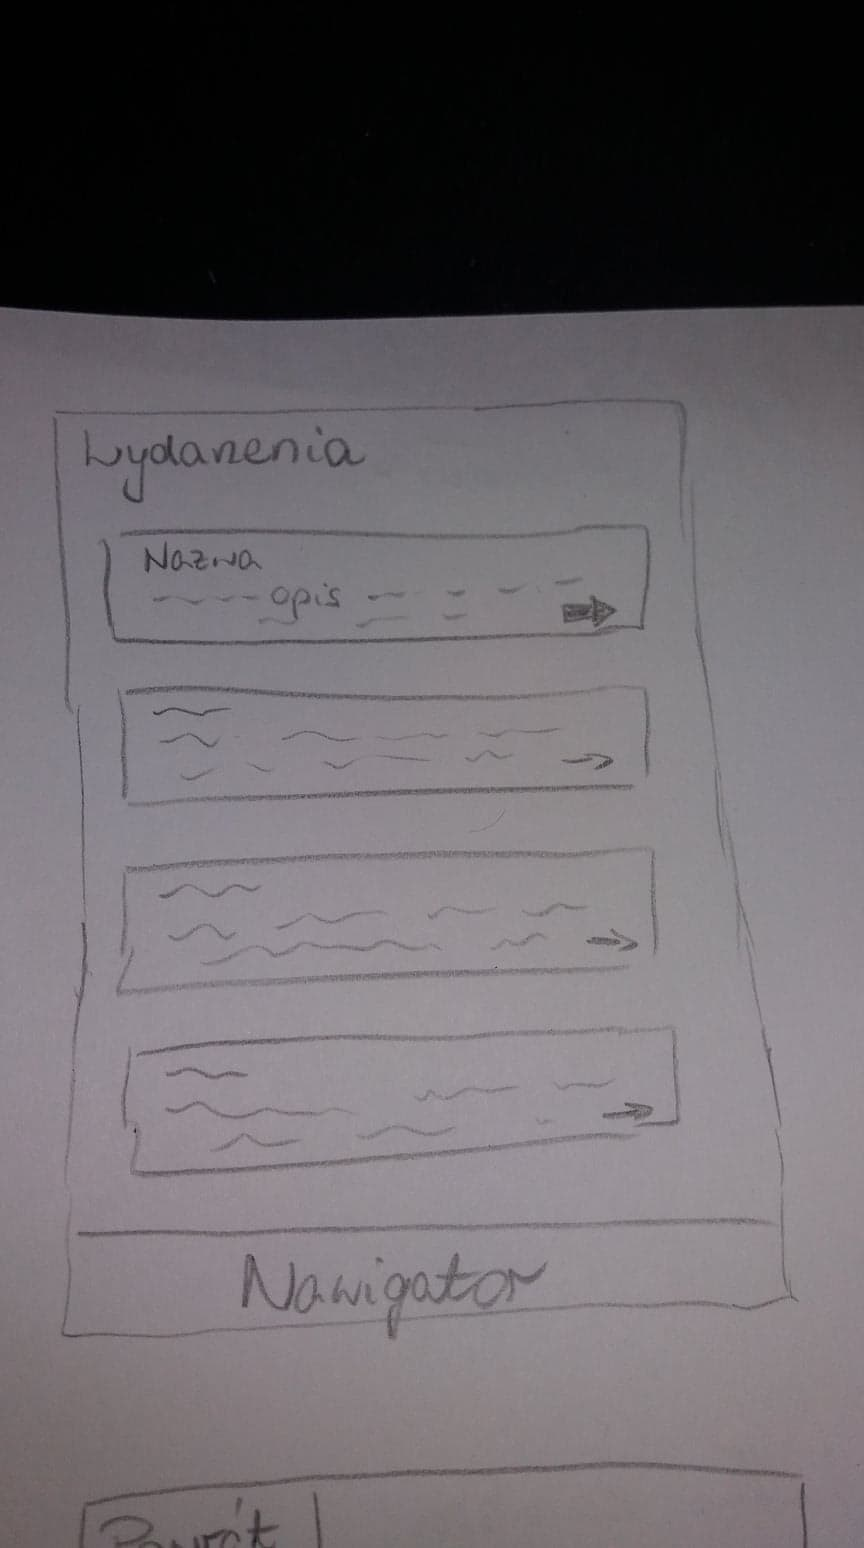 Wydarzenia
Nazwa
opis
Nawigator
Powrót